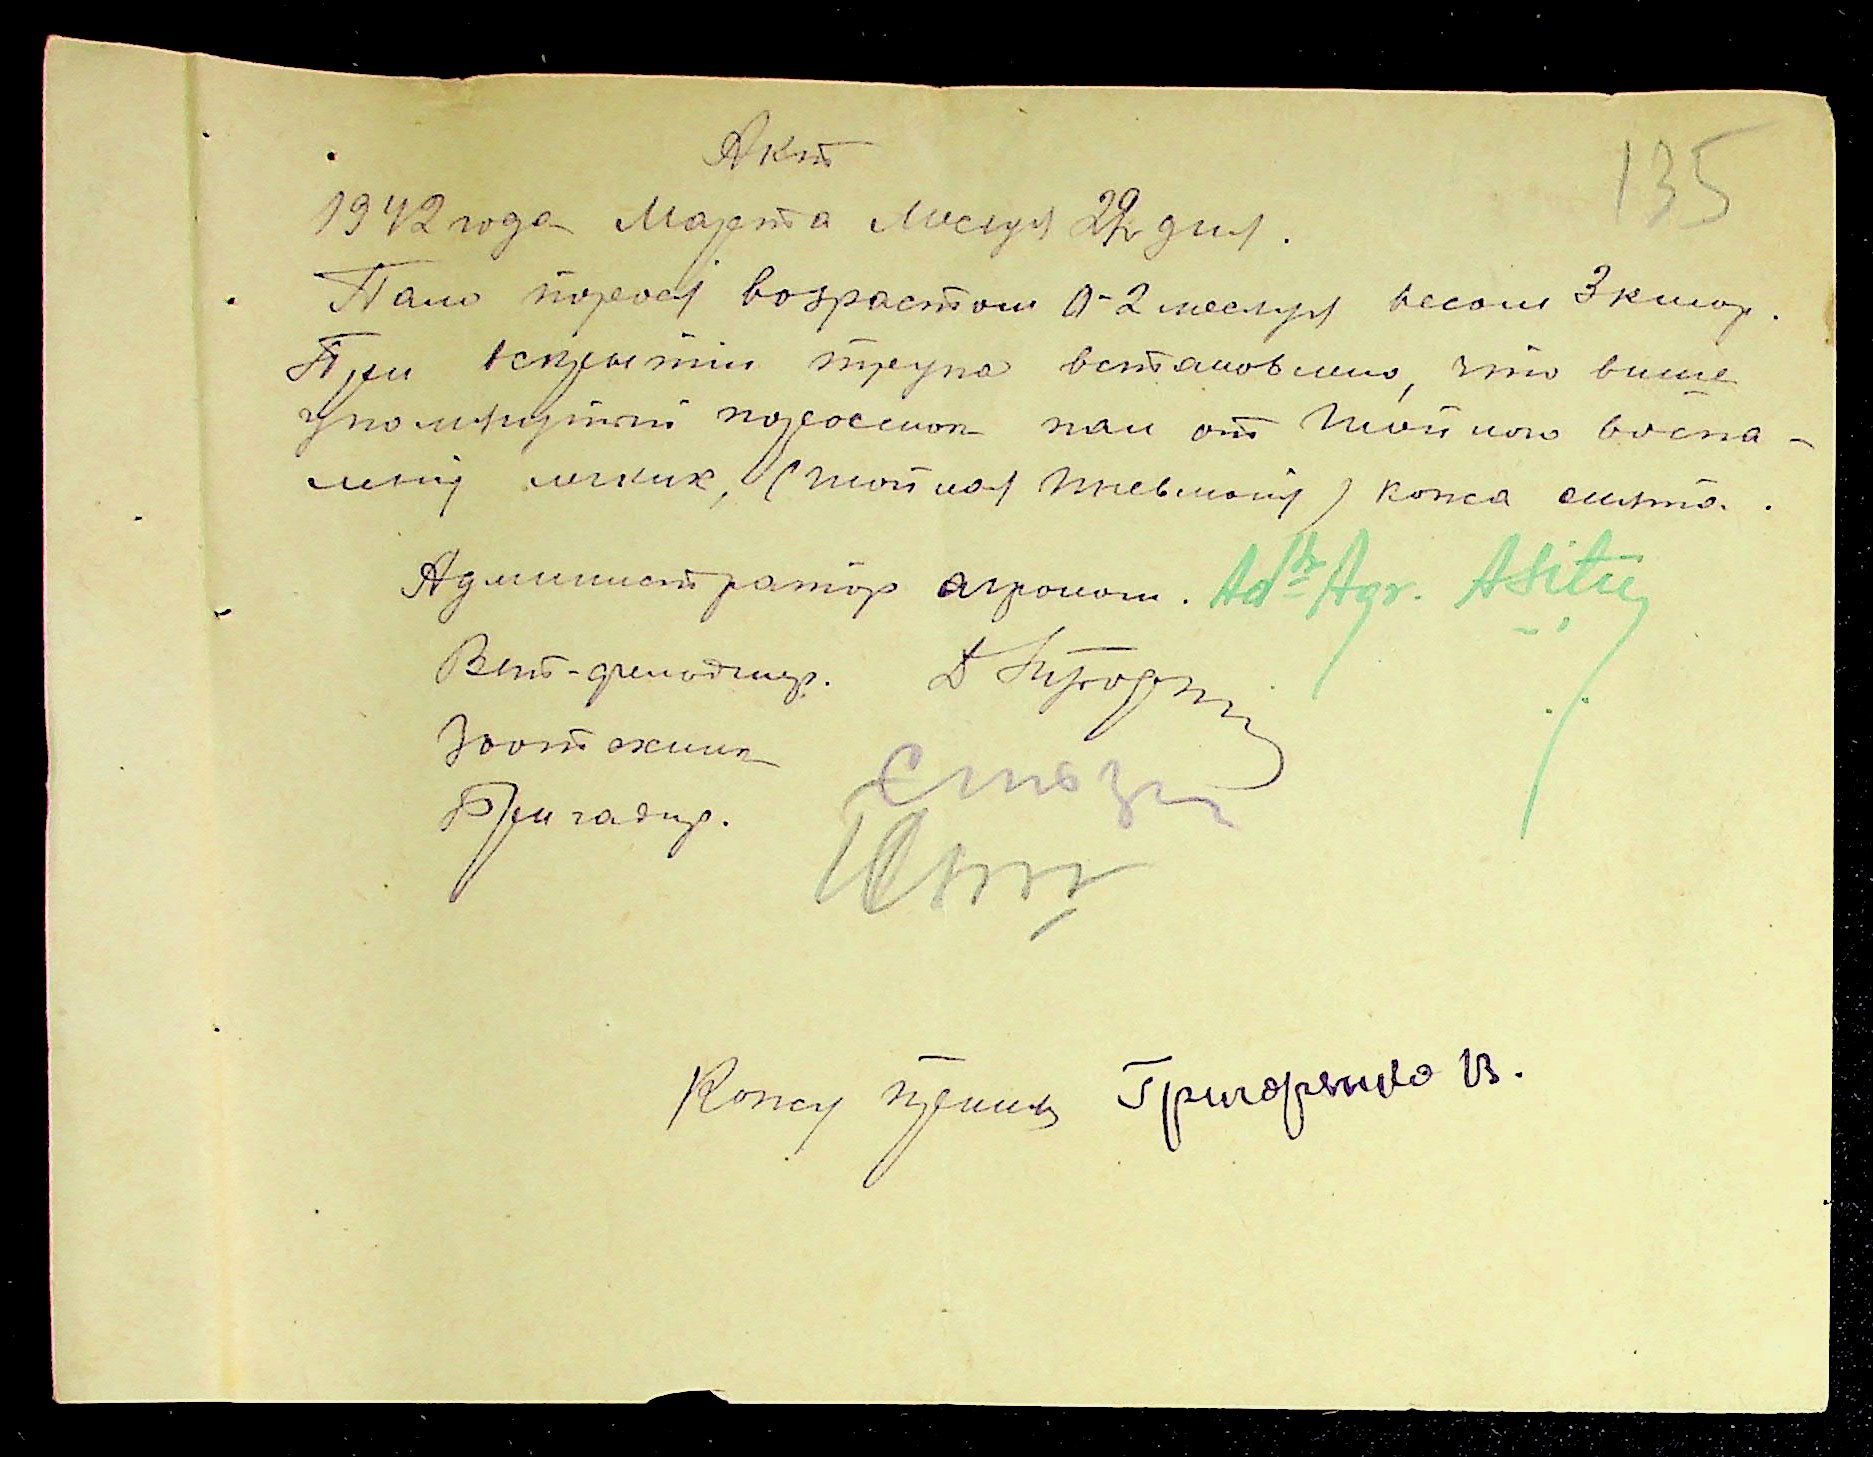 Акт
135
1942 года Марта месяця 29 дня.
Пало порося возрастом 0-2 месяця весом 3 килог.
При вскрытии трупа встановлено, что више
упомянутый поросіонок пал от гнойного воспа-
ления легких, (гнойная пневмонія) кожа снята.
Администратор агроном. Adtr Agr.
Вет-фельдшер.
Зоотехник
Бригадир.
Кожу принял Григоренко В.